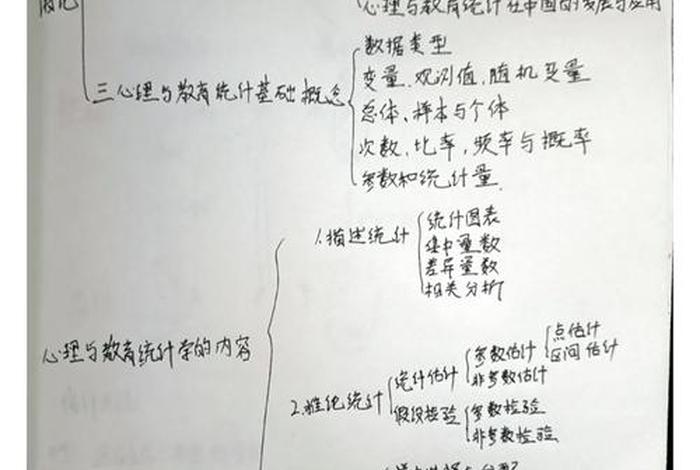 心理与教育统计在中国的发展与应用
数据类型
变量、观测值、随机变量
三 心理与教育统计基础概念
总体、样本与个体
次数、比率、频率与概率
参数和统计量
1.描述统计
统计图表
集中量数
差异量数
相关分析
心理与教育统计学的内容
2.推论统计
统计估计
参数估计
点估计
区间估计
非参数估计
假设检验
参数检验
非参数检验